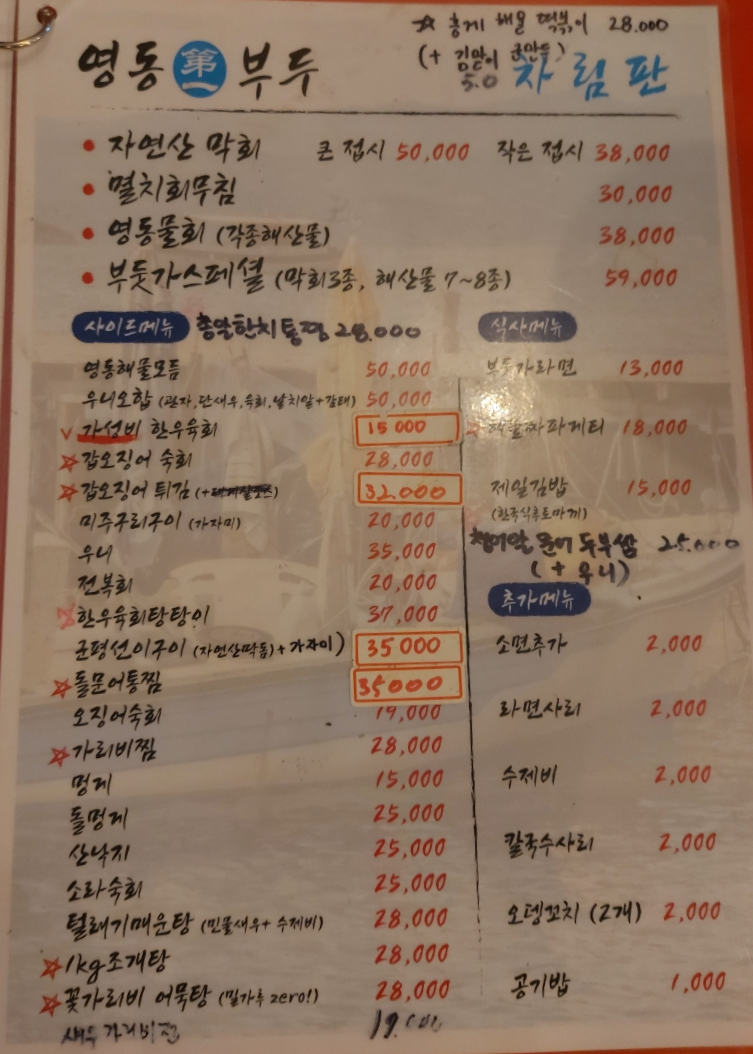 ☆ 홍게 해물 떡볶이 28.000
(+ 김말이 군만두)
5.0
영동 第一 부두 차림판
• 자연산 막회 큰 접시 50,000 작은 접시 38,000
• 멸치회무침 30,000
• 영동물회 (각종해산물) 38,000
• 부둣가스페셜 (막회3종, 해산물 7~8종) 59,000
사이드메뉴 총알한치통찜 28.000
영동해물모듬 50,000
우니오합 (관자,단새우,육회,날치알+감태) 50,000
v 가성비 한우육회 15 000
☆ 갑오징어 숙회 28,000
☆ 갑오징어 튀김 32.000
미주구리구이 (가자미) 20,000
우니 35,000
전복회 20,000
☆ 한우육회탕탕이 37,000
군평선이구이 (자연산딱돔)+가자미) 35 000
☆ 돌문어통찜 35000
오징어숙회 19,000
☆ 가리비찜 28,000
멍게 15,000
돌멍게 25,000
산낙지 25,000
소라숙회 25,000
털래기매운탕 (민물새우+수제비) 28,000
☆ 1kg조개탕 28,000
☆ 꽃가리비 어묵탕 (밀가루 zero!) 28,000
새우 가리비전 19.000
식사메뉴
부둣가라면 13,000
☆ 해물짜파게티 18,000
제일김밥 15,000
(한국식후토마끼)
청어알 문어 두부쌈 25.000
(+ 우니)
추가메뉴
소면추가 2,000
라면사리 2,000
수제비 2,000
칼국수사리 2,000
오뎅꼬치 (2개) 2,000
공기밥 1,000